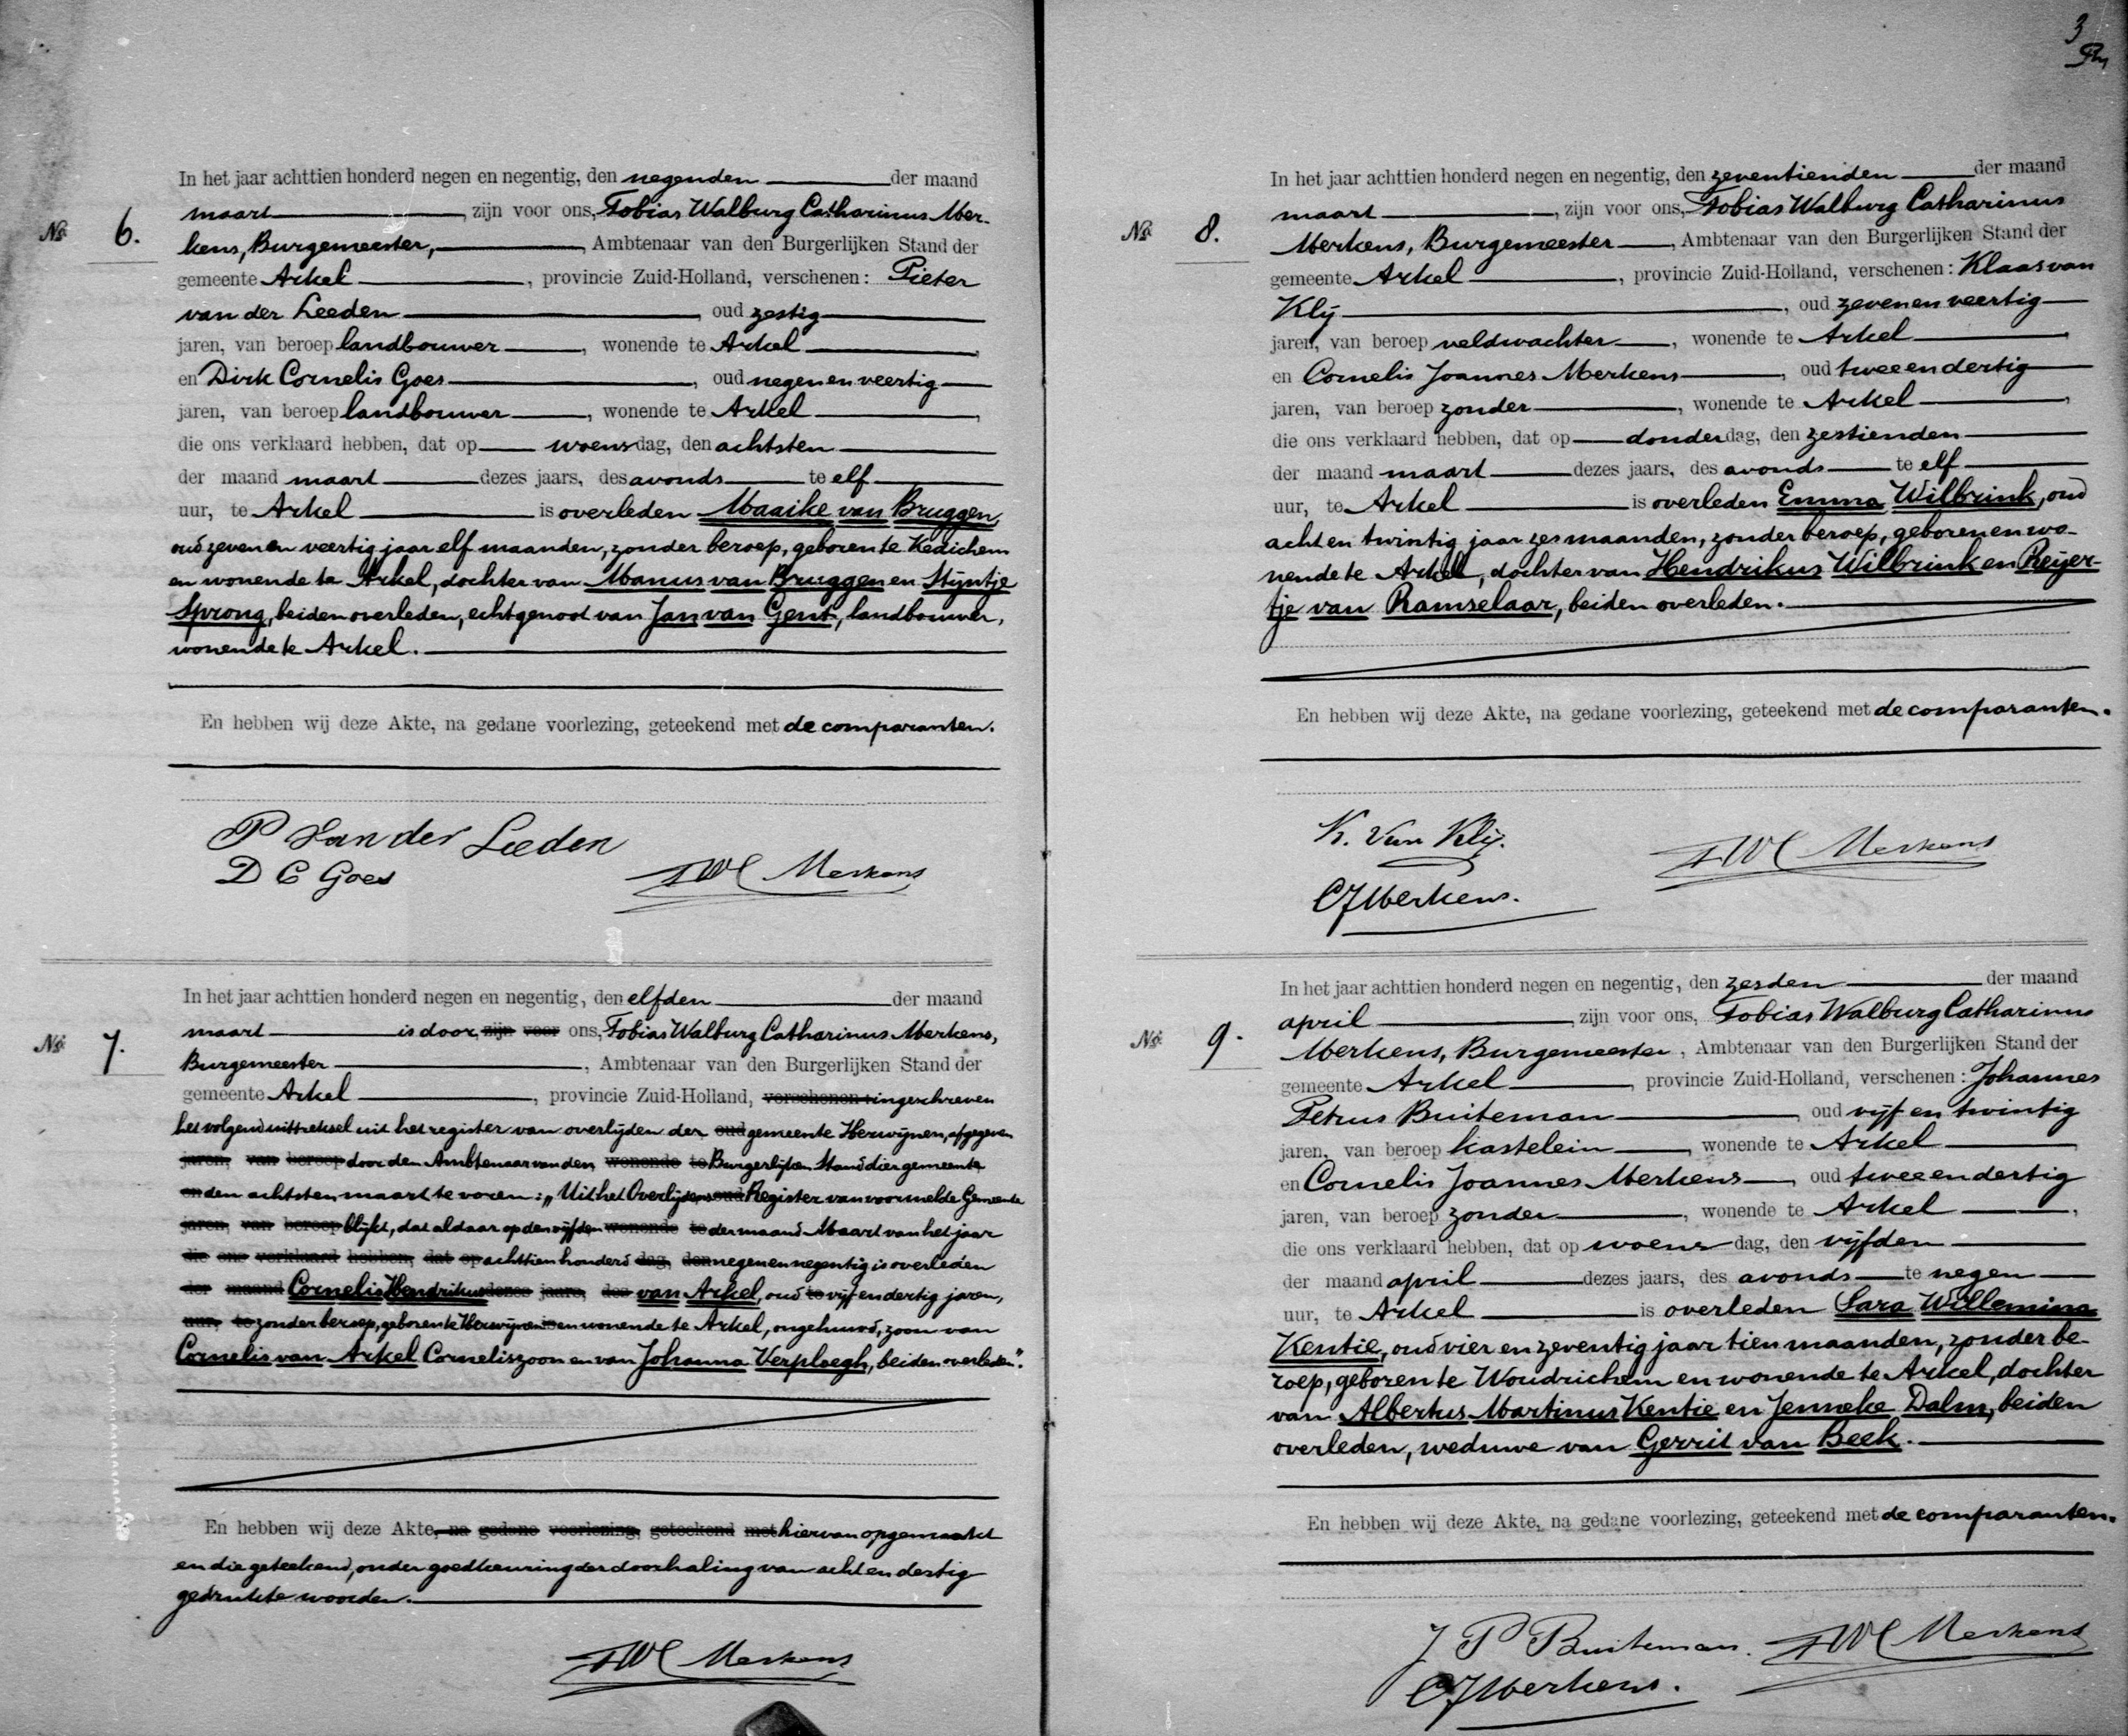 No. 6.
In het jaar achttien honderd negen en negentig, den negenden der maand
maart, zijn voor ons, Tobias Walburg Catharinus Mer-
kens, Burgemeester, Ambtenaar van den Burgerlijken Stand der
gemeente Arkel, provincie Zuid-Holland, verschenen: Pieter
van der Leeden, oud zestig
jaren, van beroep landbouwer, wonende te Arkel,
en Dirk Cornelis Goes, oud negen en veertig
jaren, van beroep landbouwer, wonende te Arkel,
die ons verklaard hebben, dat op woensdag, den achtsten
der maand maart dezes jaars, des avonds te elf
uur, te Arkel is overleden Maaike van Bruggen,
oud zeven en veertig jaar elf maanden, zonder beroep, geboren te Kedichem
en wonende te Arkel, dochter van Manus van Bruggen en Stijntje
Sprong, beiden overleden, echtgenoot van Jan van Gent, landbouwer,
wonende te Arkel.
En hebben wij deze Akte, na gedane voorlezing, geteekend met de comparanten.
P van der Leeden
D C Goes
TWC Merkens
No. 7.
In het jaar achttien honderd negen en negentig, den elfden der maand
maart is door zijn voor ons, Tobias Walburg Catharinus Merkens,
Burgemeester, Ambtenaar van den Burgerlijken Stand der
gemeente Arkel, provincie Zuid-Holland, verschenen: ingeschreven
het volgend uittreksel uit het register van overlijden der oud gemeente Herwijnen, afgegeven
jaren, van beroep door den Ambtenaar van den wonende te Burgerlijken Stand dier gemeente
en den achtsten maart te voren: „Uit het Overlijdens oud Register van voormelde Gemeente
jaren, van beroep blijkt, dat aldaar op den vijfden wonende te der maand Maart van het jaar
die ons verklaard hebben, dat op achttienhonderd dag, den negenennegentig is overleden
der maand Cornelis Hendrikus dezes jaars, des van Arkel, oud te vijf en dertig jaren,
uur, te zonder beroep, geboren te Herwijnen is en wonende te Arkel, ongehuwd, zoon van
Cornelis van Arkel Corneliszoon en van Johanna Verploegh, beiden overleden".
En hebben wij deze Akte, na gedane voorlezing, geteekend met hiervan opgemaakt
en die geteekend, onder goedkeuring der doorhaling van acht en dertig
gedrukte woorden.
TWC Merkens
3
No. 8.
In het jaar achttien honderd negen en negentig, den zeventienden der maand
maart, zijn voor ons, Tobias Walburg Catharinus
Merkens, Burgemeester, Ambtenaar van den Burgerlijken Stand der
gemeente Arkel, provincie Zuid-Holland, verschenen: Klaas van
Klij, oud zeven en veertig
jaren, van beroep veldwachter, wonende te Arkel,
en Cornelis Joannes Merkens, oud twee en dertig
jaren, van beroep zonder, wonende te Arkel,
die ons verklaard hebben, dat op donderdag, den zestienden
der maand maart dezes jaars, des avonds te elf
uur, te Arkel is overleden Emma Wilbrink, oud
acht en twintig jaar zes maanden, zonder beroep, geboren en wo-
nende te Arkel, dochter van Hendrikus Wilbrink en Reijer-
tje van Ramselaar, beiden overleden.
En hebben wij deze Akte, na gedane voorlezing, geteekend met de comparanten.
K. van Klij.
CJMerkens.
TWC Merkens
No. 9.
In het jaar achttien honderd negen en negentig, den zesden der maand
april, zijn voor ons, Tobias Walburg Catharinus
Merkens, Burgemeester, Ambtenaar van den Burgerlijken Stand der
gemeente Arkel, provincie Zuid-Holland, verschenen: Johannes
Petrus Buiteman, oud vijf en twintig
jaren, van beroep kastelein, wonende te Arkel,
en Cornelis Joannes Merkens, oud twee en dertig
jaren, van beroep zonder, wonende te Arkel,
die ons verklaard hebben, dat op woensdag, den vijfden
der maand april dezes jaars, des avonds te negen
uur, te Arkel is overleden Sara Willemina
Kentie, oud vier en zeventig jaar tien maanden, zonder be-
roep, geboren te Woudrichem en wonende te Arkel, dochter
van Albertus Martinus Kentie en Jenneke Dalm, beiden
overleden, weduwe van Gerrit van Beek.
En hebben wij deze Akte, na gedane voorlezing, geteekend met de comparanten.
J P Buiteman.
TWC Merkens
CJMerkens.